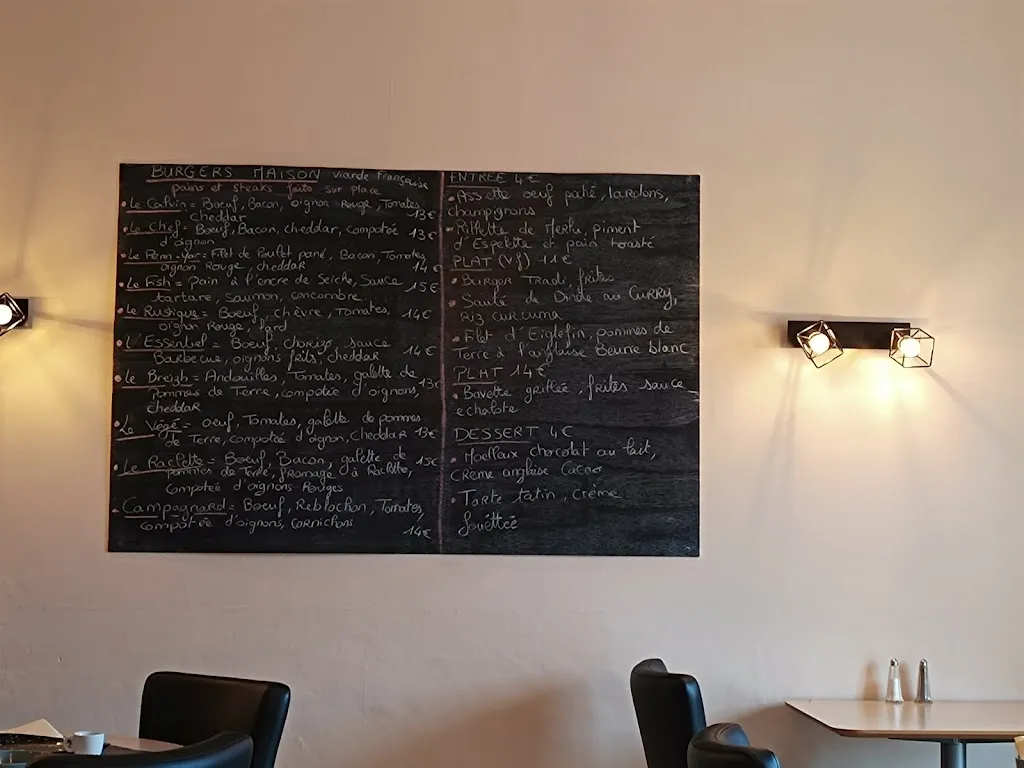 BURGERS MAISON viande Française
pains et steaks faits sur place
• Le Calvin = Boeuf, Bacon, oignon Rouge, Tomates,
cheddar 13€
• Le Chef = Boeuf, Bacon, cheddar, compotée 13€
d'oignon
• Le Penn-Yar = Filet de Poulet pané, Bacon, Tomates,
oignon Rouge, cheddar 14€
• Le Fish = Pain à l'encre de Seiche, Sauce 15€
tartare, saumon, concombre
• Le Rustique = Boeuf, chèvre, Tomates, 14€
oignon Rouge, lard
• L'Essentiel = Boeuf, chorizo, sauce
Barbecue, oignons frits, cheddar 14€
• Le Breizh = Andouilles, Tomates, galette de
pommes de Terre, compotée d'oignons, 13€
cheddar
• Le Végé = oeuf, Tomates, galette de pommes
de Terre, compotée d'oignon, cheddar 13€
• Le Raclette = Boeuf, Bacon, galette de 15€
pommes de Terre, fromage à Raclette,
compotée d'oignons Rouges
• Campagnard = Boeuf, Reblochon, Tomates,
compotée d'oignons, cornichons
14€
ENTREE 4€
• Assiette oeuf pathé, lardons,
champignons
• Rillette de Merlu, piment
d'Espelette et pain toasté
PLAT (VF) 11€
• Burger Tradi, frites
• Sauté de Dinde au CURRY,
Riz curcuma
• Filet d'Eiglefin, pommes de
Terre à l'anglaise Beurre blanc
PLAT 14€
• Bavette grillée, frites sauce
echalote
DESSERT 4€
• Moelleux chocolat au lait,
Crème anglaise Cacao
• Tarte tatin, crème
fouéttée